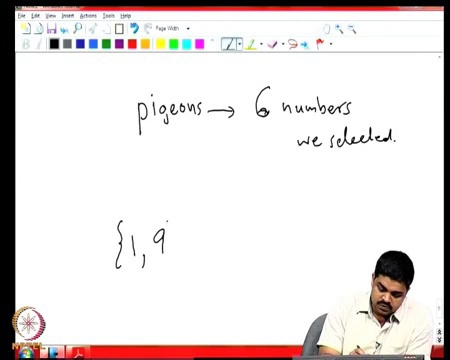 File Edit View Insert Actions Tools Help
Page Width
B I
pigeons → 6 numbers
we selected.
{1, 9